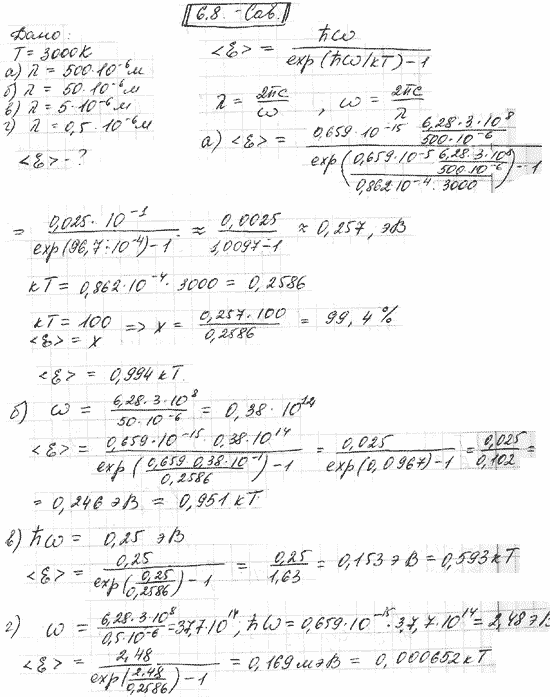 6.8. - Сав.
Дано:
T = 3000 K
а) λ = 500·10⁻⁶ м
б) λ = 50·10⁻⁶ м
в) λ = 5·10⁻⁶ м
г) λ = 0,5·10⁻⁶ м
<ε> - ?
<ε> = ħω / (exp(ħω/кT) - 1)
λ = 2πc/ω , ω = 2πc/λ
а) <ε> = (0,659·10⁻¹⁵ (6,28·3·10⁸)/(500·10⁻⁶)) / (exp((0,659·10⁻⁵ (6,28·3·10⁸)/(500·10⁻⁶))/(0,862·10⁻⁴·3000)) - 1)
= (0,025·10⁻¹)/(exp(96,7·10⁻⁴) - 1) ≈ 0,0025/(1,0097 - 1) ≈ 0,257, эВ
кT = 0,862·10⁻⁴·3000 = 0,2586
кT = 100
<ε> = x => x = (0,257·100)/0,2586 = 99,4 %
<ε> = 0,994 кT.
б) ω = (6,28·3·10⁸)/(50·10⁻⁶) = 0,38·10¹⁴
<ε> = (0,659·10⁻¹⁵·0,38·10¹⁴)/(exp((0,659·0,38·10⁻¹)/0,2586) - 1) = 0,025/(exp(0,0967) - 1) = 0,025/0,102 =
= 0,246 эВ = 0,951 кT
в) ħω = 0,25 эВ
<ε> = 0,25/(exp(0,25/0,2586) - 1) = 0,25/1,63 = 0,153 эВ = 0,593 кT
г) ω = (6,28·3·10⁸)/(0,5·10⁻⁶) = 37,7·10¹⁴, ħω = 0,659·10⁻¹⁵·37,7·10¹⁴ = 2,48 эВ
<ε> = 2,48/(exp(2,48/0,2586) - 1) = 0,169 мэВ = 0,000652 кT